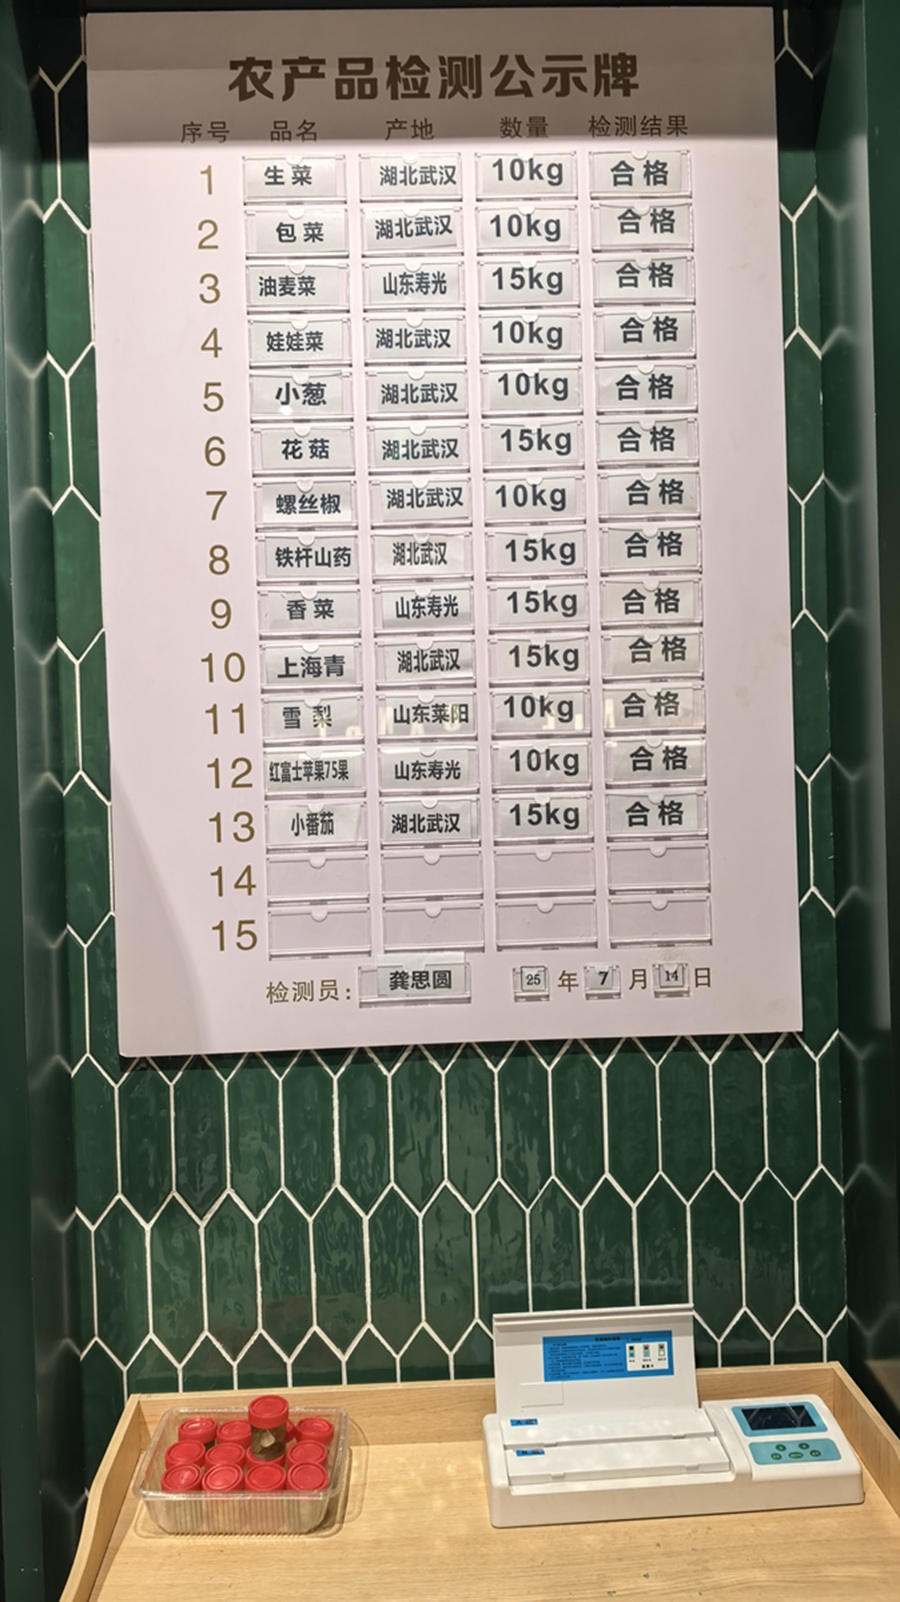 农产品检测公示牌
序号 品名 产地 数量 检测结果
1 生菜 湖北武汉 10kg 合格
2 包菜 湖北武汉 10kg 合格
3 油麦菜 山东寿光 15kg 合格
4 娃娃菜 湖北武汉 10kg 合格
5 小葱 湖北武汉 10kg 合格
6 花菇 湖北武汉 15kg 合格
7 螺丝椒 湖北武汉 10kg 合格
8 铁杆山药 湖北武汉 15kg 合格
9 香菜 山东寿光 15kg 合格
10 上海青 湖北武汉 15kg 合格
11 雪梨 山东莱阳 10kg 合格
12 红富士苹果75果 山东寿光 10kg 合格
13 小番茄 湖北武汉 15kg 合格
14
15
检测员: 龚思圆 25 年 7 月 14 日